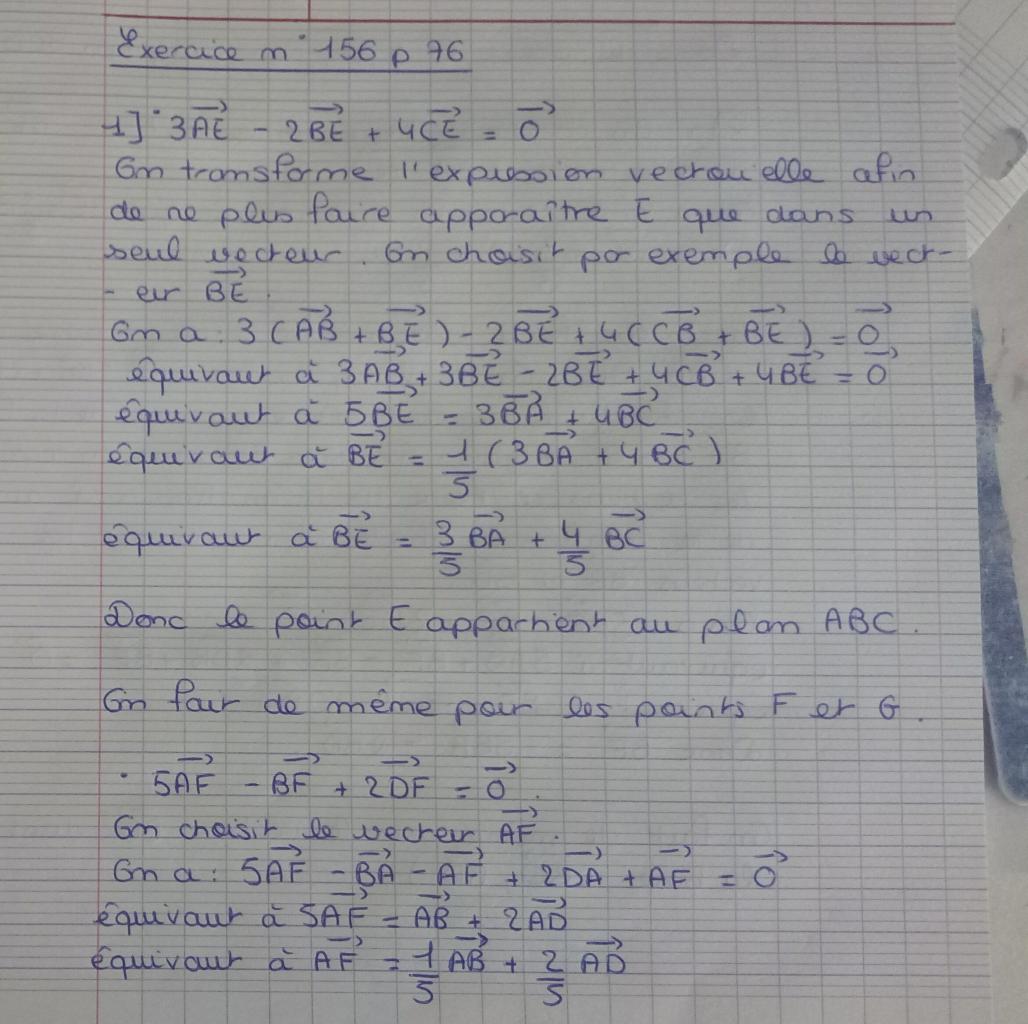 Exercice n° 156 p 76
1] • 3AE⃗ - 2BE⃗ + 4CE⃗ = 0⃗
On transforme l'expression vectorielle afin
de ne plus faire apparaître E que dans un
seul vecteur. On choisit par exemple le vect-
-eur BE⃗.
On a : 3(AB⃗ + BE⃗) - 2BE⃗ + 4(CB⃗ + BE⃗) = 0⃗
équivaut à 3AB⃗ + 3BE⃗ - 2BE⃗ + 4CB⃗ + 4BE⃗ = 0⃗
équivaut à 5BE⃗ = 3BA⃗ + 4BC⃗
équivaut à BE⃗ = 1/5 (3BA⃗ + 4BC⃗)
équivaut à BE⃗ = 3/5 BA⃗ + 4/5 BC⃗
Donc le point E appartient au plan ABC.
On fait de même pour les points F et G.
• 5AF⃗ - BF⃗ + 2DF⃗ = 0⃗.
On choisit le vecteur AF⃗.
On a : 5AF⃗ - BA⃗ - AF⃗ + 2DA⃗ + AF⃗ = 0⃗
équivaut à 5AF⃗ = AB⃗ + 2AD⃗
équivaut à AF⃗ = 1/5 AB⃗ + 2/5 AD⃗